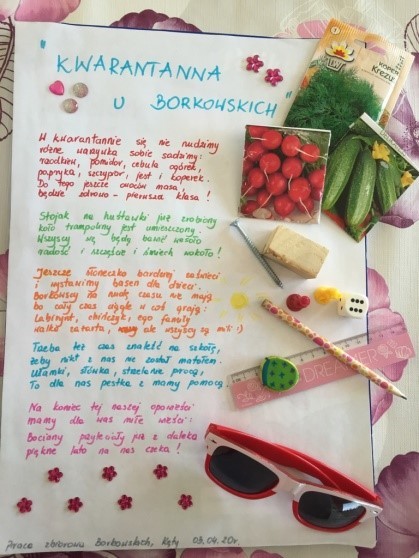 "KWARANTANNA
U BORKOWSKICH"
W kwarantannie się nie nudzimy
różne warzywka sobie sadzimy:
rzodkiew, pomidor, cebula, ogórek,
papryka, szczypior, jest i koperek.
Do tego jeszcze owoców masa,
będzie zdrowo - pierwsza klasa!
Stojak na huśtawki już zrobiony
koło trampoliny jest umieszczony.
Wszyscy się będą bawić wesoło
radość i szczęście i śmiech wokoło!
Jeszcze słoneczko bardziej zaświeci
i wystawimy basen dla dzieci.
Borkowscy na nudę czasu nie mają
bo cały czas ciągle w coś grają:
Labirynt, chińczyk, ego
walka zażarta, ale wszyscy są mili :)
Trzeba też czas znaleźć na szkołę,
żeby nikt z nas nie został matołem.
Ułamki, słówka, strzelanie procą,
To dla nas pestka z mamy pomocą
Na koniec tej naszej opowieści
mamy dla was miłe wieści:
Bociany przyleciały już z daleka
piękne lato na nas czeka!
Praca zbiorowa Borkowskich, Kęty 09.04.20r.
KOPER
Krezus
DREAMER